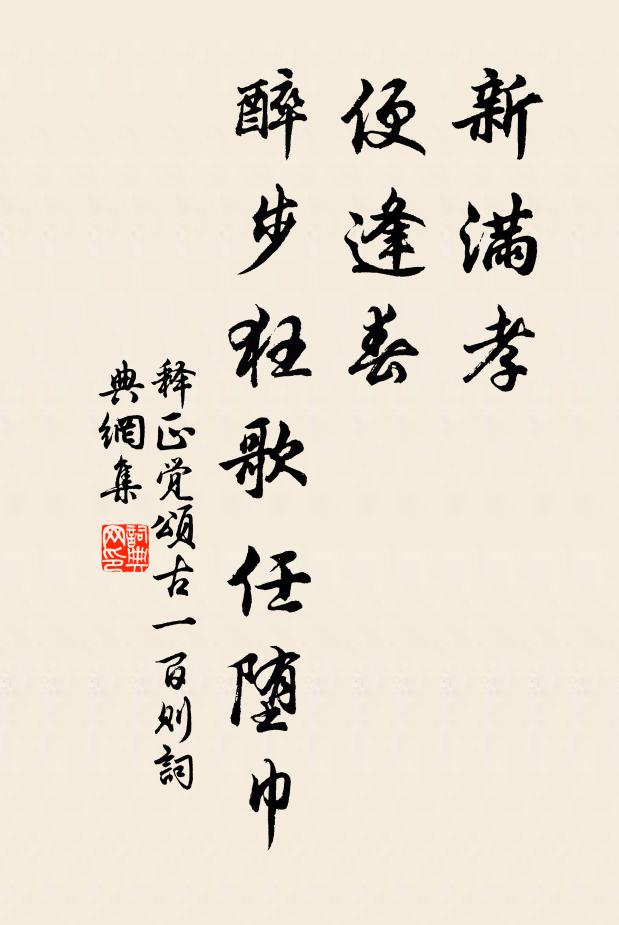 新满孝
便逢春
醉步狂歌任堕巾
释正觉颂古一百则词
典網集
詞典
网印